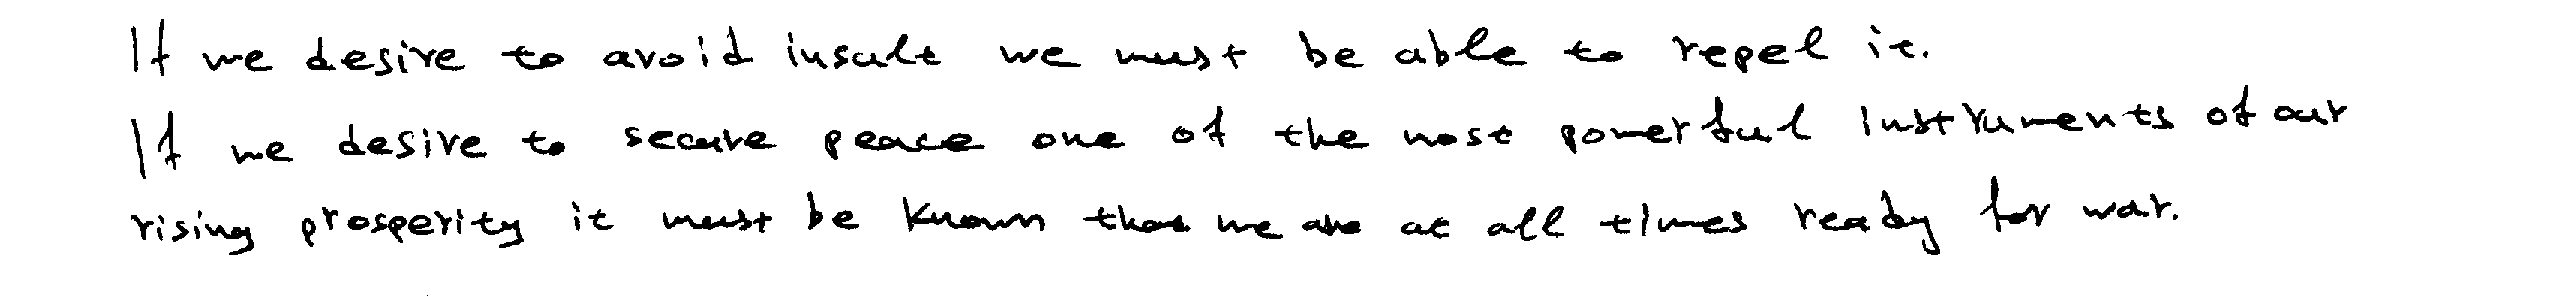 If we desire to avoid insult we must be able to repel it.
If we desire to secure peace one of the most powerful instruments of our
rising prosperity it must be known that we are at all times ready for war.